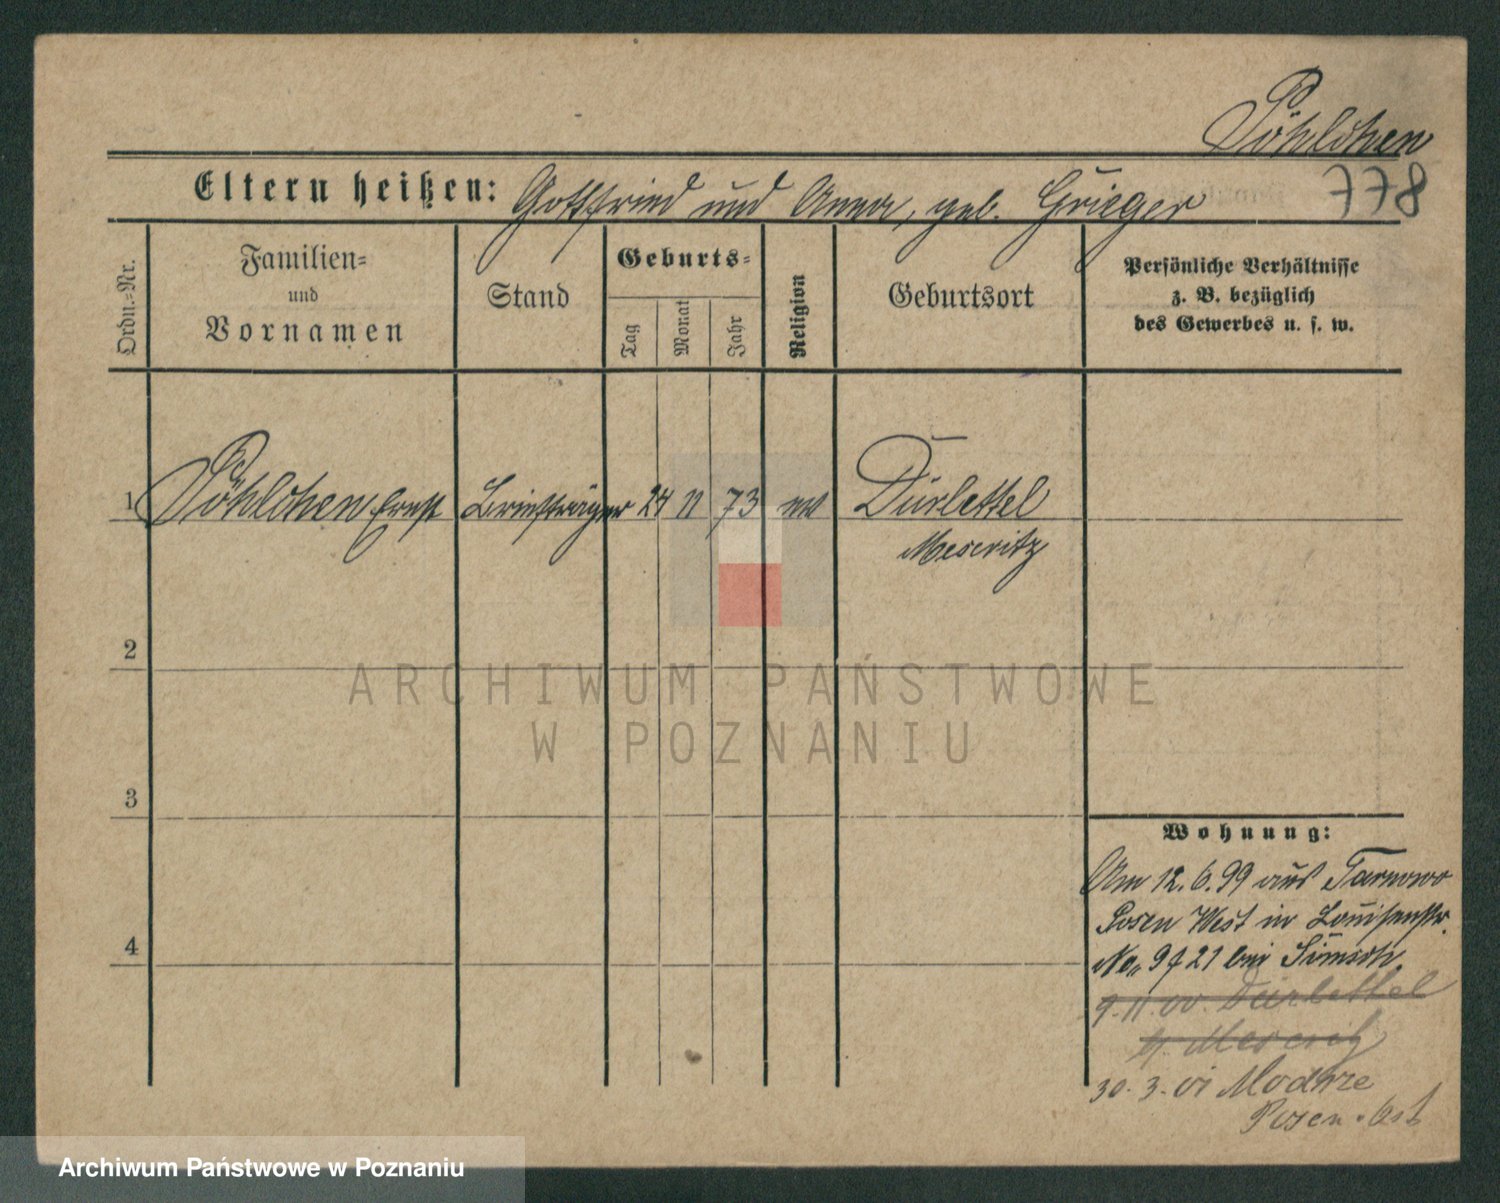 Pöhlchen
Eltern heißen: Gottfried und Anna, geb. Grieger
778
Ordn.=Nr.
Familien=
und
Vornamen
Stand
Geburts=
Tag
Monat
Jahr
Religion
Geburtsort
Persönliche Verhältnisse
z. B. bezüglich
des Gewerbes u. s. w.
1 Pöhlchen Ernst Briefträger 24 11 73 ev Dürlettel
Meseritz
2
3
4
Wohnung:
Am 12. 6. 99 aus Tarnowo
Posen West in Louisenstr.
No. 9 21 bei
9. 11. 00. Dürlettel
Meseritz
30. 3. 01 Modrze
Posen. Ost
ARCHIWUM PAŃSTWOWE
W POZNANIU
Archiwum Państwowe w Poznaniu